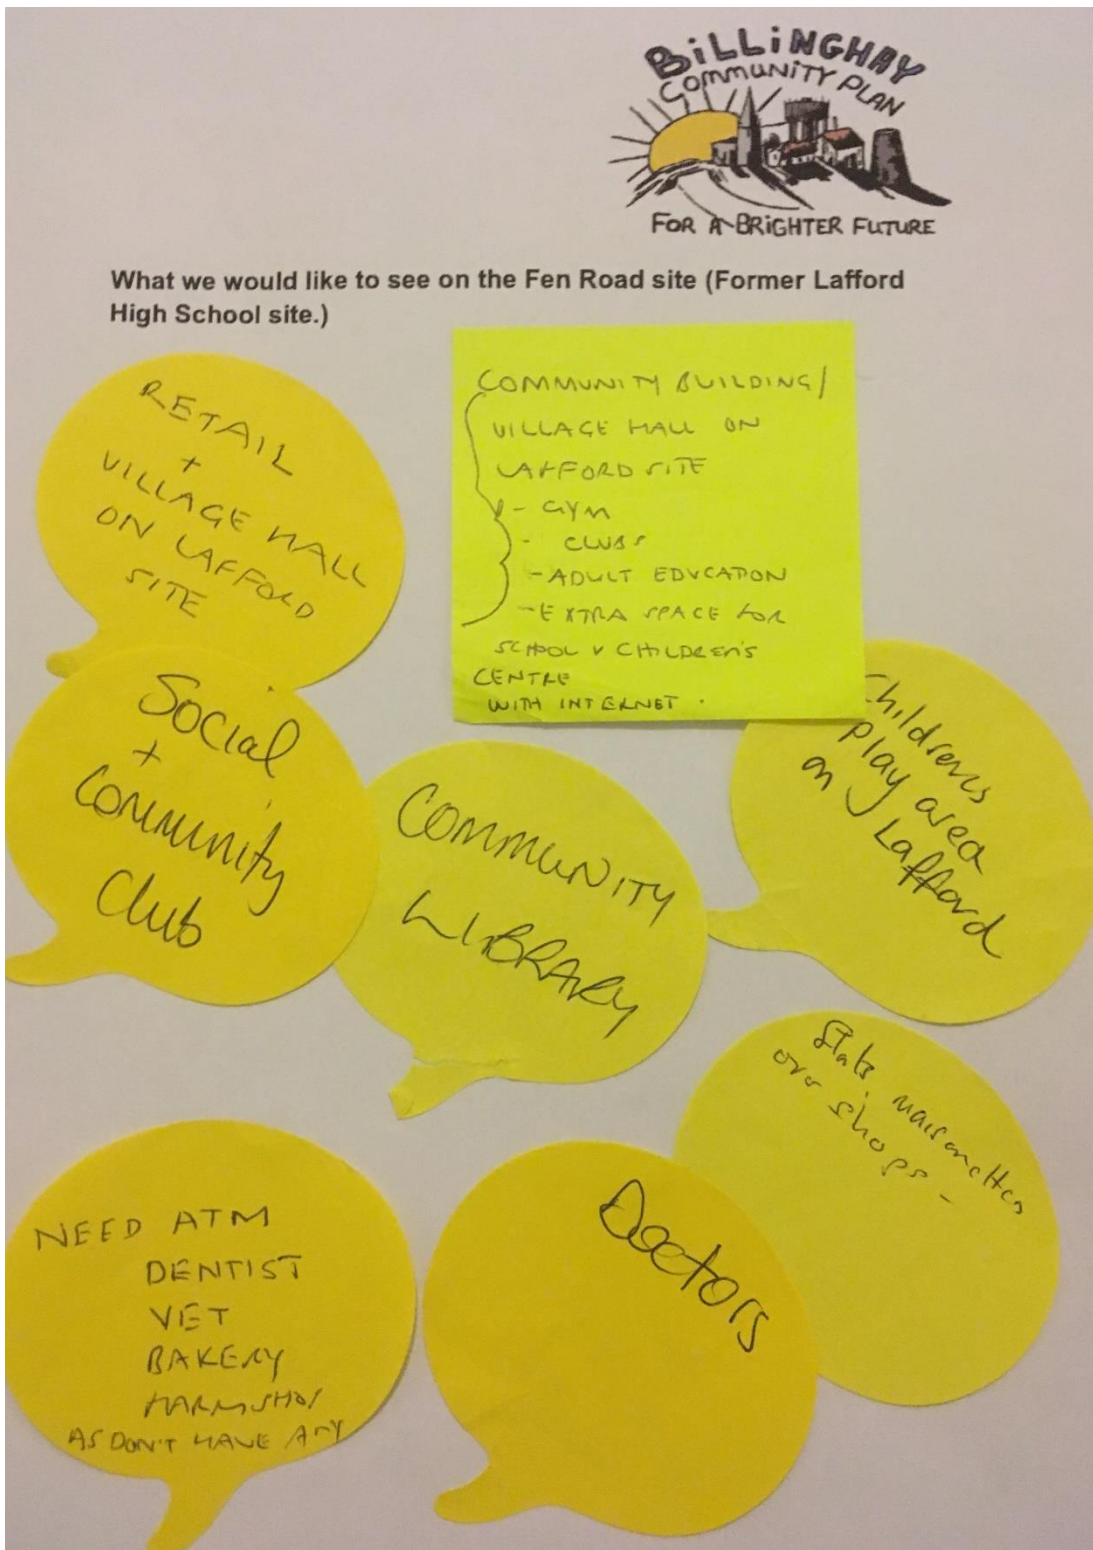 BiLLiNGHAY
COMMUNiTY PLAN
FOR A BRiGHTER FUTURE
What we would like to see on the Fen Road site (Former Lafford
High School site.)
RETAIL
+
VILLAGE HALL
ON LAFFORD
SITE
COMMUNITY BUILDING/
VILLAGE HALL ON
LAFFORD SITE
- GYM
- CLUBS
- ADULT EDUCATION
- EXTRA SPACE FOR
SCHOOL & CHILDREN'S
CENTRE
WITH INTERNET.
Social
+
Community
Club
COMMUNITY
LIBRARY
Childrens
play area
on Lafford
flats, maisonettes
over shops -
NEED ATM
DENTIST
VET
BAKERY
FARM SHOP
AS DON'T HAVE ANY
Doctors